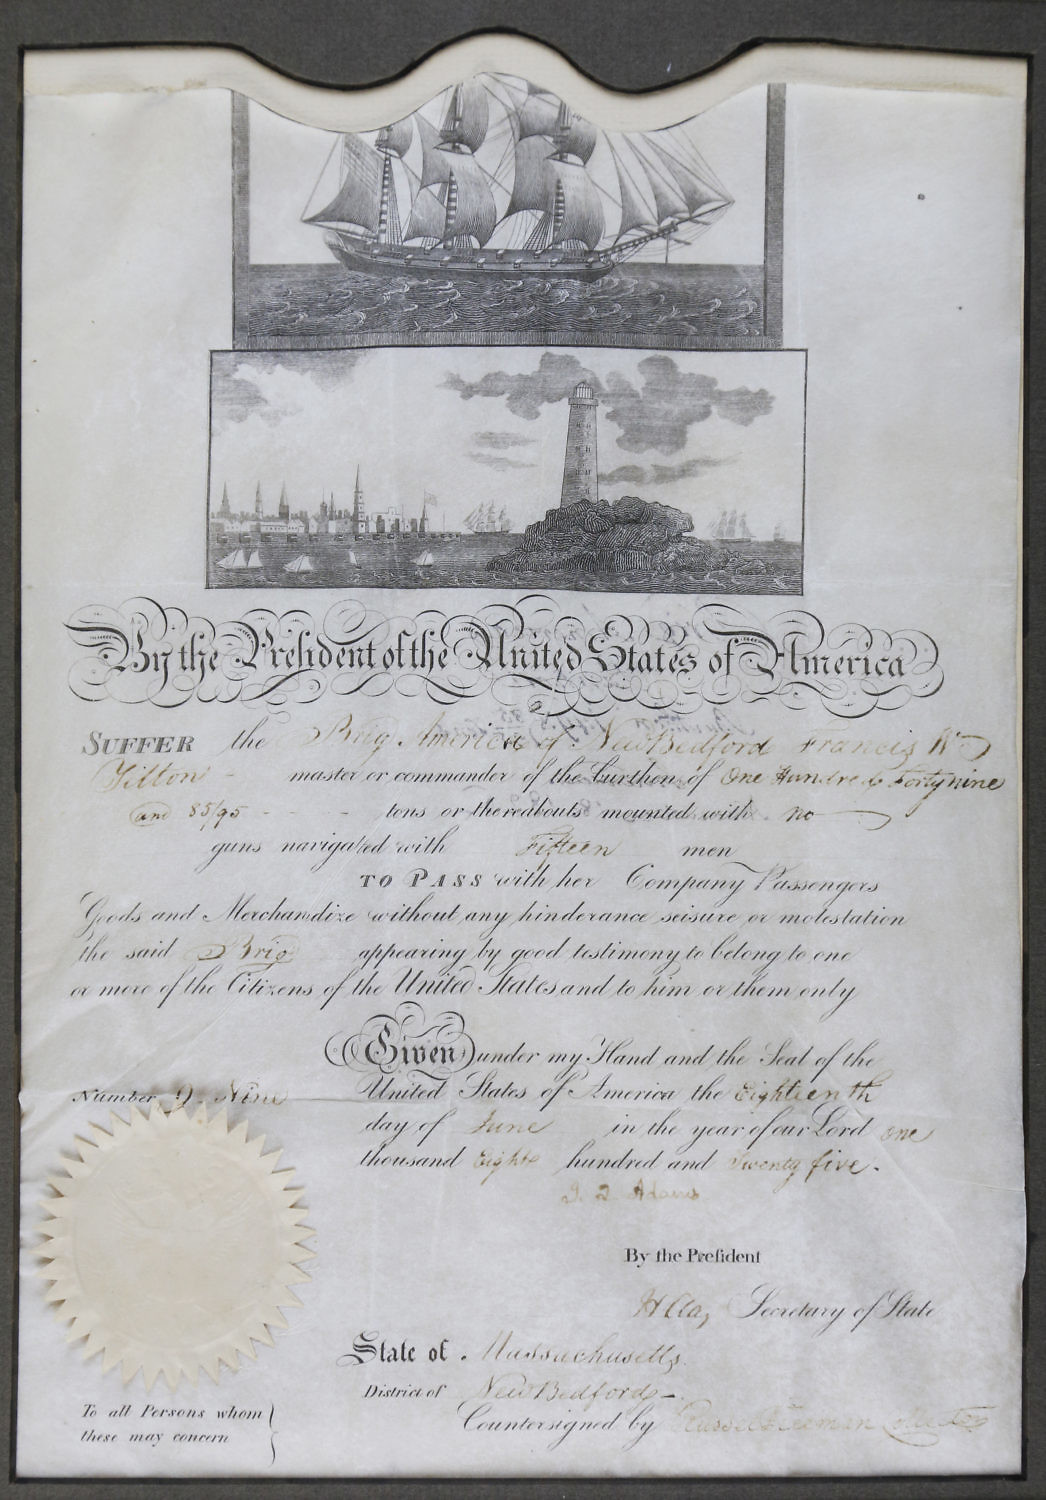 By the President of the United States of America
SUFFER the Brig America of New Bedford Francis W
Tilton - master or commander of the burthen of One Hundred Forty nine
and 85/95 - - tons or thereabouts mounted with no
guns navigated with Fifteen men
TO PASS with her Company Passengers
Goods and Merchandize without any hinderance seisure or molestation
the said Brig appearing by good testimony to belong to one
or more of the Citizens of the United States and to him or them only
Given under my Hand and the Seal of the
Number 9. Nine United States of America the Eighteenth
day of June in the year of our Lord one
thousand Eight hundred and Twenty five.
J. Q. Adams
By the Preſident
H Clay Secretary of State
State of Massachusetts.
District of New Bedford
Countersigned by Russell Freeman Collector
To all Persons whom
these may concern